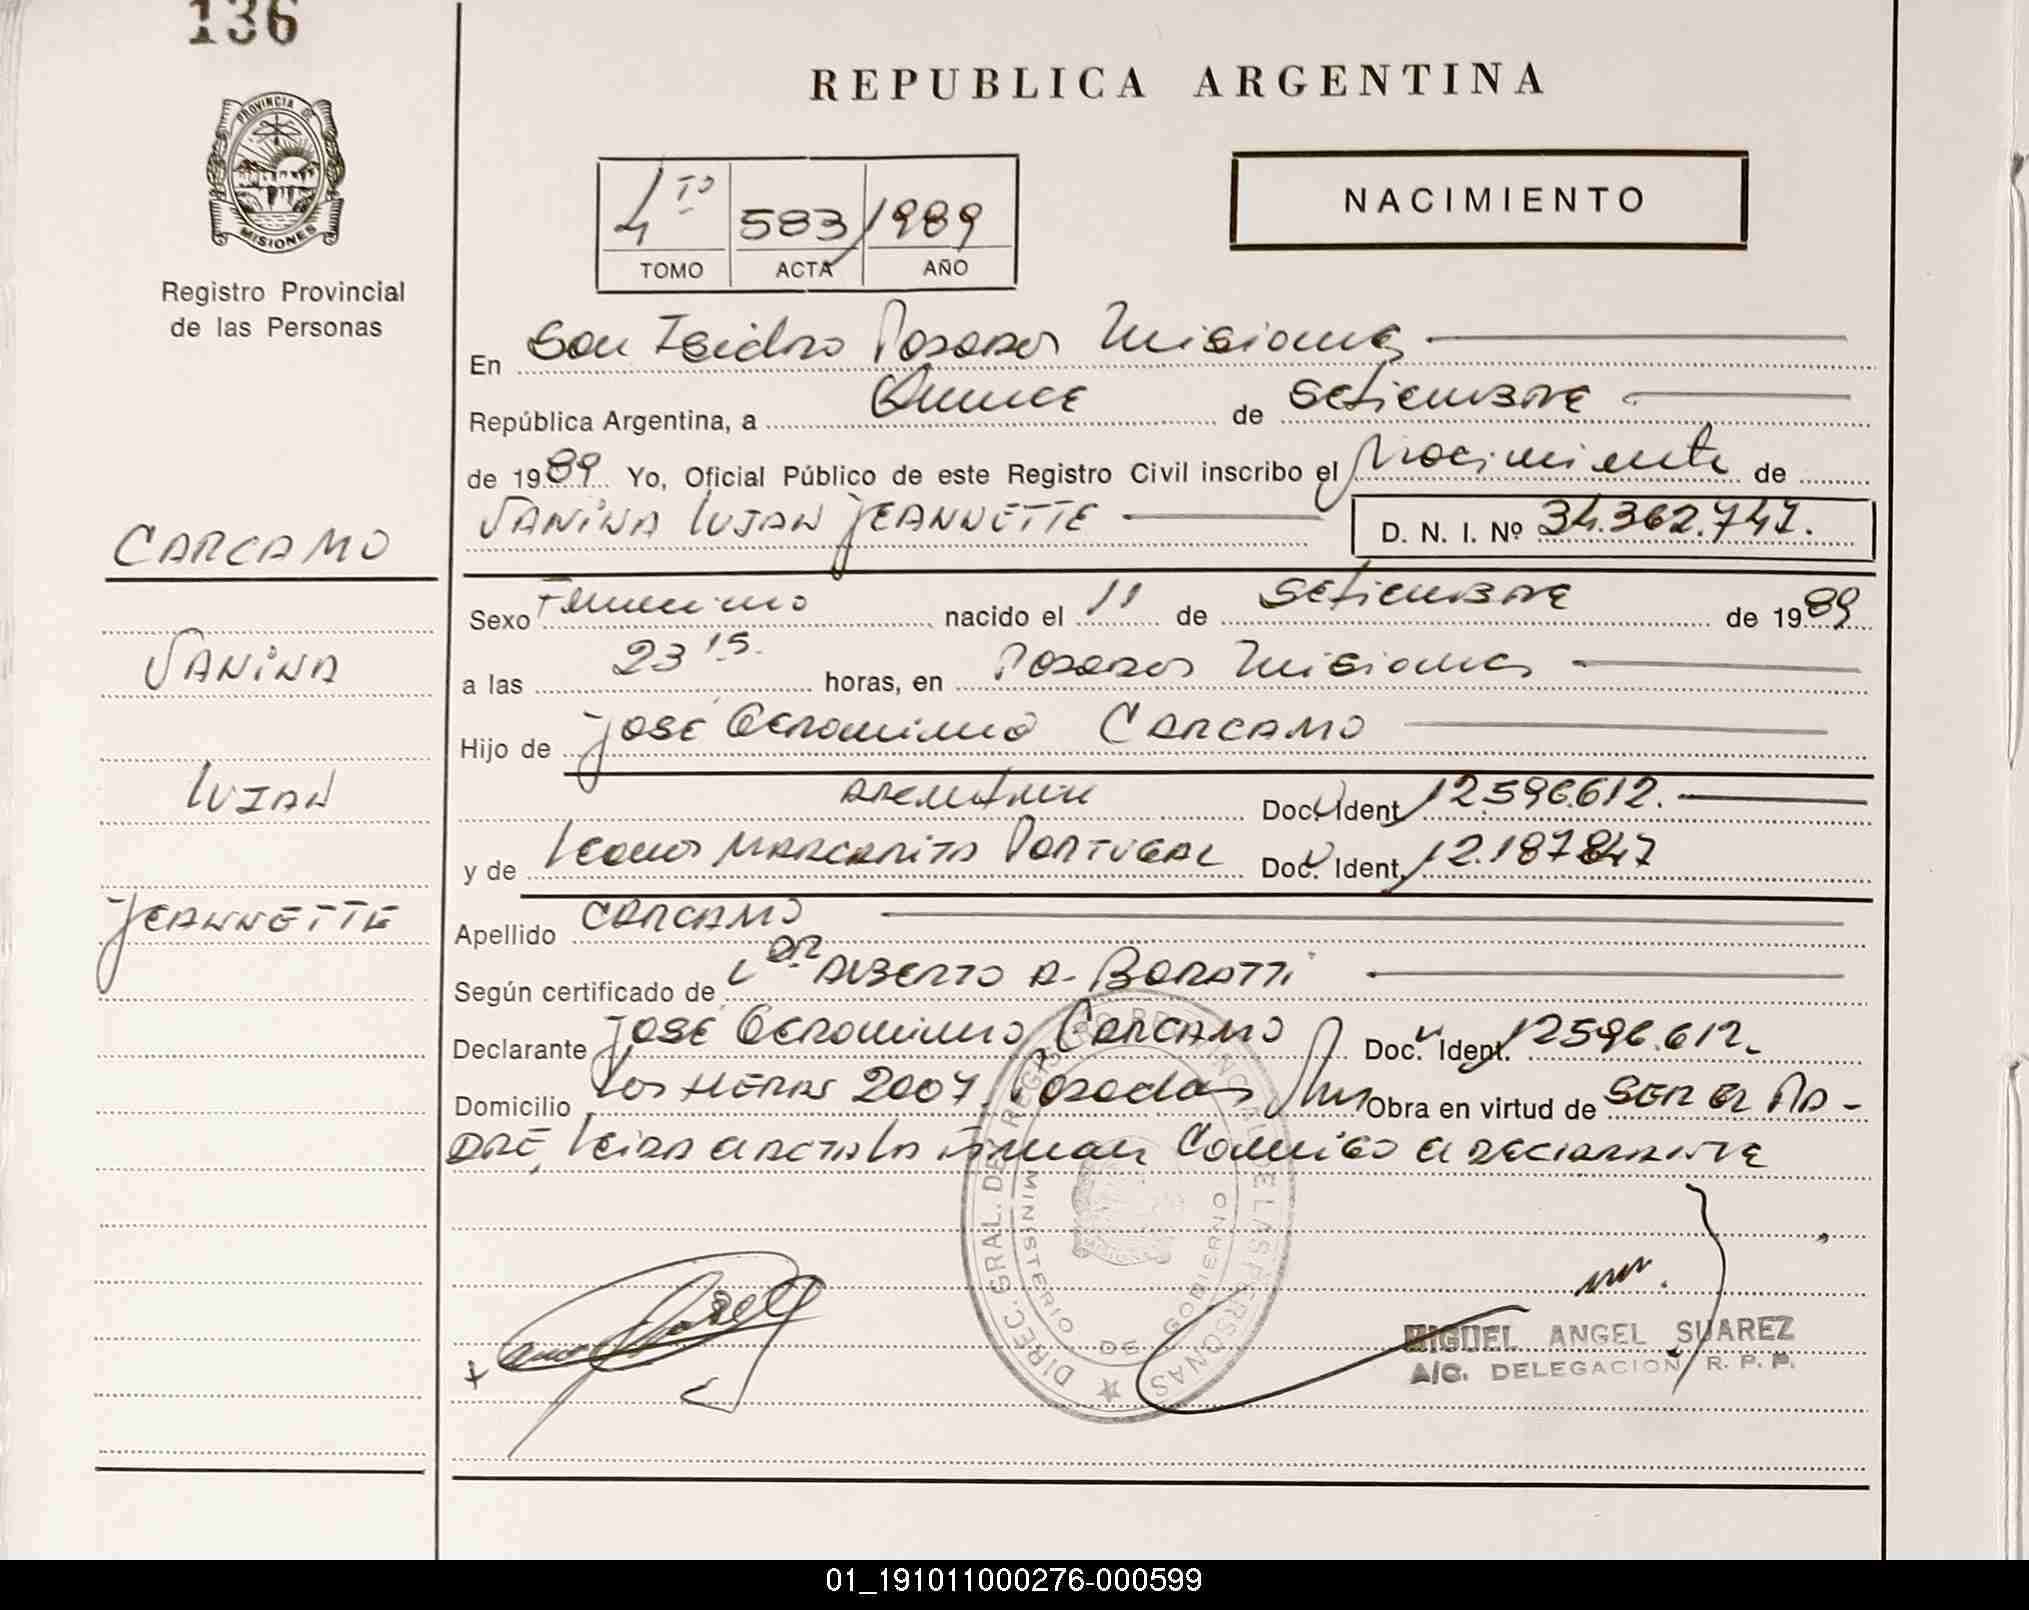 136
REPUBLICA ARGENTINA
PROVINCIA DE
MISIONES
Registro Provincial
de las Personas
4 TO 583 1989
TOMO ACTA AÑO
NACIMIENTO
En San Isidro Posadas Misiones
República Argentina, a Quince de Setiembre
de 1989 Yo, Oficial Público de este Registro Civil inscribo el Nacimiento de
VANINA LUJAN JEANNETTE D. N. I. Nº 34.362.747.
CARCAMO
VANINA
LUJAN
JEANNETTE
Sexo Femenino nacido el 11 de Setiembre de 1989
a las 23 15. horas, en Posadas Misiones
Hijo de José Geronimo CARCAMO
Argentino Doc. Ident 12.596.612.
y de MARGARITA PORTUGAL Doc. Ident. 12.187.847
Apellido CARCAMO
Según certificado de Dr ALBERTO A. BARATTI
Declarante José Geronimo CARCAMO Doc. Ident. 12596.612.
Domicilio Las HERAS 2007. Posadas Mns Obra en virtud de SER EL PA-
DRE, Leida el acta la firman Conmigo el declarante
DIREC. GRAL. DE REGISTRO PROVINCIAL DE LAS PERSONAS
MINISTERIO DE GOBIERNO
MIGUEL ANGEL SUAREZ
A/C. DELEGACION R. P. P.
01_191011000276-000599